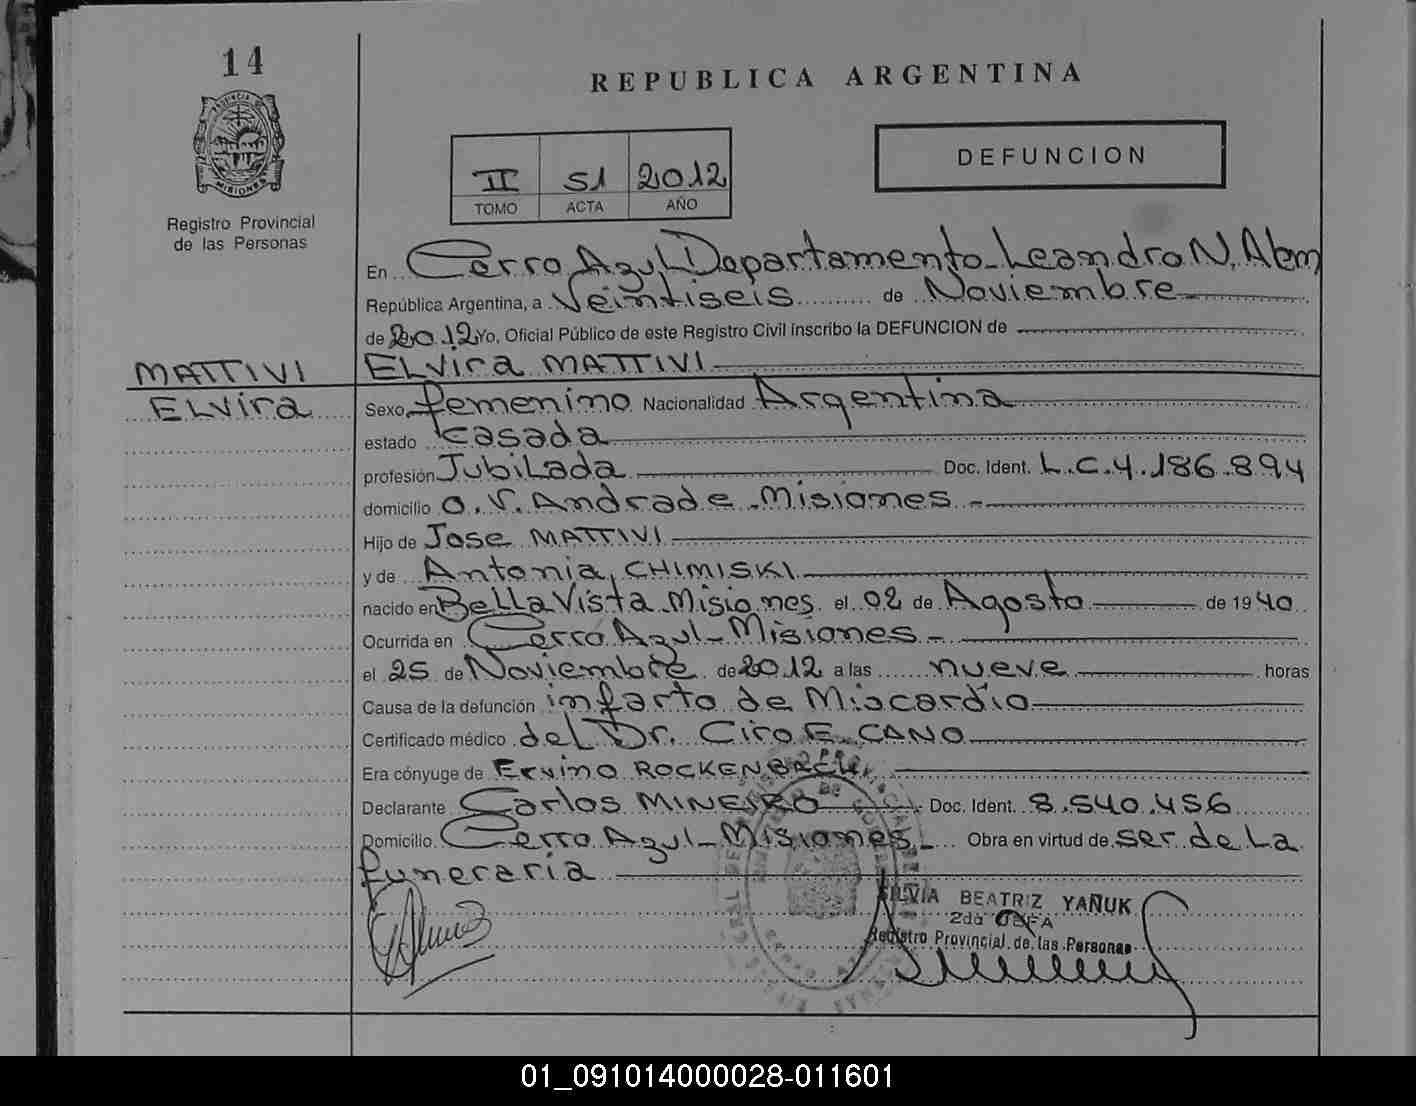 14
REPUBLICA ARGENTINA
PROVINCIA DE
MISIONES
Registro Provincial
de las Personas
II 51 2012
TOMO ACTA AÑO
DEFUNCION
En Cerro Azul Departamento Leandro N. Alem
República Argentina, a Veintiseis de Noviembre
de 2012 Yo, Oficial Público de este Registro Civil inscribo la DEFUNCION de
MATTIVI ELvira MATTIVI
ELvira Sexo femenino Nacionalidad Argentina
estado casada
profesión JubiLada Doc. Ident. L.C.4.186.894
domicilio O.V. Andrade - Misiones -
Hijo de Jose MATTIVI
y de Antonia, CHIMISKI
nacido en BeLLa Vista Misiones el 02 de Agosto de 1940
Ocurrida en Cerro Azul - Misiones -
el 25 de Noviembre de 2012 a las nueve horas
Causa de la defunción infarto de Miocardio
Certificado médico del Dr. Ciro E. CANO
Era cónyuge de Ervino
Declarante Carlos MINEIRO Doc. Ident. 8.540.456
Domicilio Cerro Azul - Misiones - Obra en virtud de ser de La
funeraria
SILVIA BEATRIZ YAÑUK
2da JEFA
Registro Provincial de las Personas
01_091014000028-011601